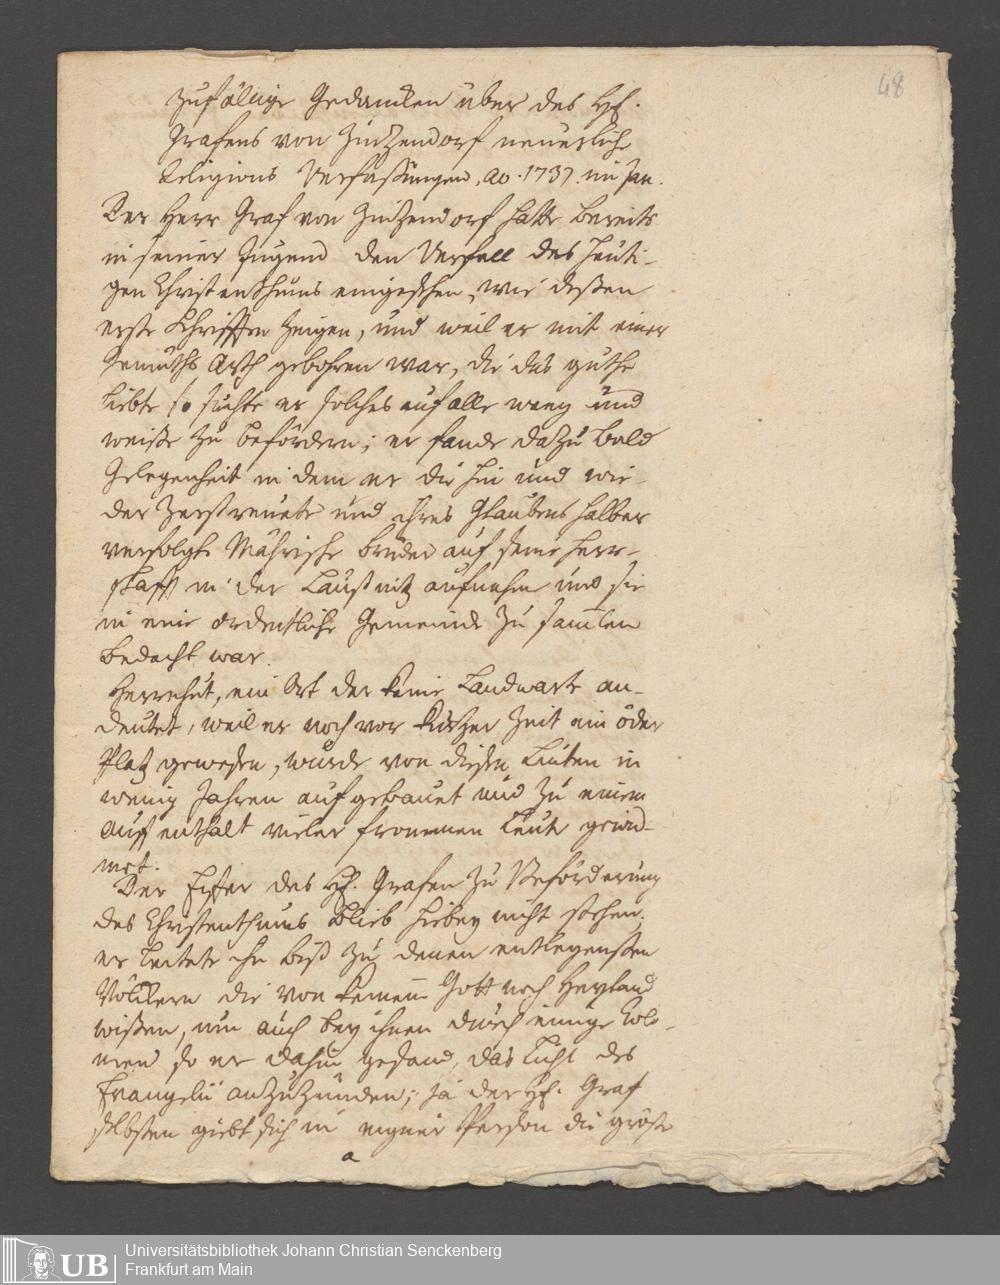 48
Zufällige Gedancken über des Hl.
Grafens von Zinzendorf neuerliche
Religions Verfaßungen, ao. 1737. im Jan.
Der Herr Graf von Zinzendorf hatte bereits
in seiner Jugend den Verfall des heuti-
gen Christenthums eingesehen, wie deßen
erste Schrifften zeigen, und weil er mit einer
Gemüths Arth gebohren war, die das guthe
liebte so suchte er solches auf alle weeg und
weiße zu befördern; er fande dazu bald
Gelegenheit in dem er die hin und wie-
der zerstreuete und ihres Glaubens halber
verfolgte Mährische Brüder auf seine Herr-
schafft in der Laußnitz aufnahm und sie
in eine ordentliche Gemeinde zu samlen
bedacht war.
Herrnhut, ein Ort der keine Landwarte an-
deutet, weil er noch vor kurtzer Zeit ein öder
Platz gewesen, wurde von diesen Leuten in
wenig Jahren auf gebauet und zu einem
Auffenthalt vieler frommen Leute gewid-
met.
Der Eyfer des Hl. Grafen zu Beförderung
des Christenthums blieb hiebey nicht stehen,
er leitete ihn biß zu denen entlegensten
Völckern die von keinem Gott noch Heyland
wißen, um auch bey ihnen durch einige Colo-
nien so er dahin gesand, das Licht des
Evangelii anzuzünden; ja der Hl. Graf
selbsten giebt sich in eigner Person die gröste
a
Universitätsbibliothek Johann Christian Senckenberg
Frankfurt am Main
UB